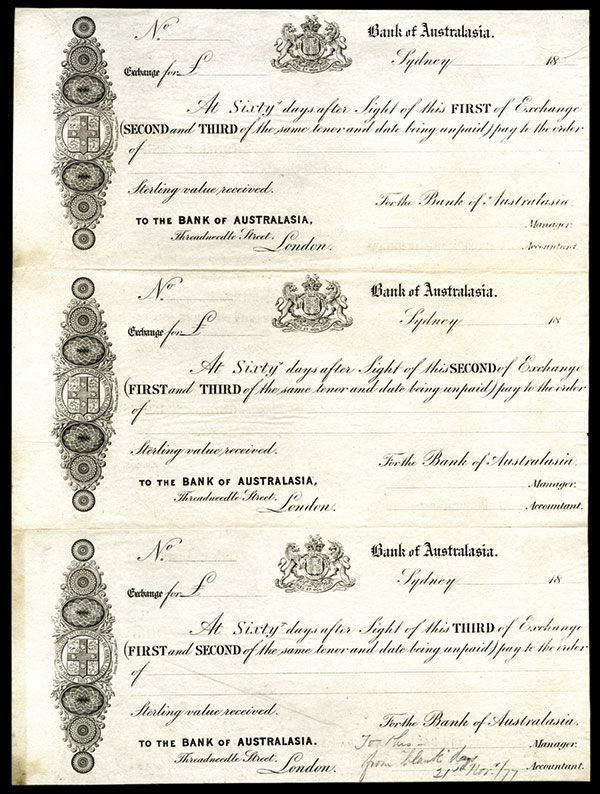 No
Bank of Australasia.
Sydney 18
Exchange for £
At Sixty days after Sight of this FIRST of Exchange
(SECOND and THIRD of the same tenor and date being unpaid) pay to the order
of
Sterling value received.
For the Bank of Australasia.
TO THE BANK OF AUSTRALASIA,
Manager.
Threadneedle Street,
London.
Accountant.
No
Bank of Australasia.
Sydney 18
Exchange for £
At Sixty days after Sight of this SECOND of Exchange
(FIRST and THIRD of the same tenor and date being unpaid) pay to the order
of
Sterling value received.
For the Bank of Australasia.
TO THE BANK OF AUSTRALASIA,
Manager.
Threadneedle Street,
London.
Accountant.
No
Bank of Australasia.
Sydney 18
Exchange for £
At Sixty days after Sight of this THIRD of Exchange
(FIRST and SECOND of the same tenor and date being unpaid) pay to the order
of
Sterling value received.
For the Bank of Australasia.
TO THE BANK OF AUSTRALASIA.
To this
Manager.
Threadneedle Street,
from blank
London.
21st Nov/77
Accountant.